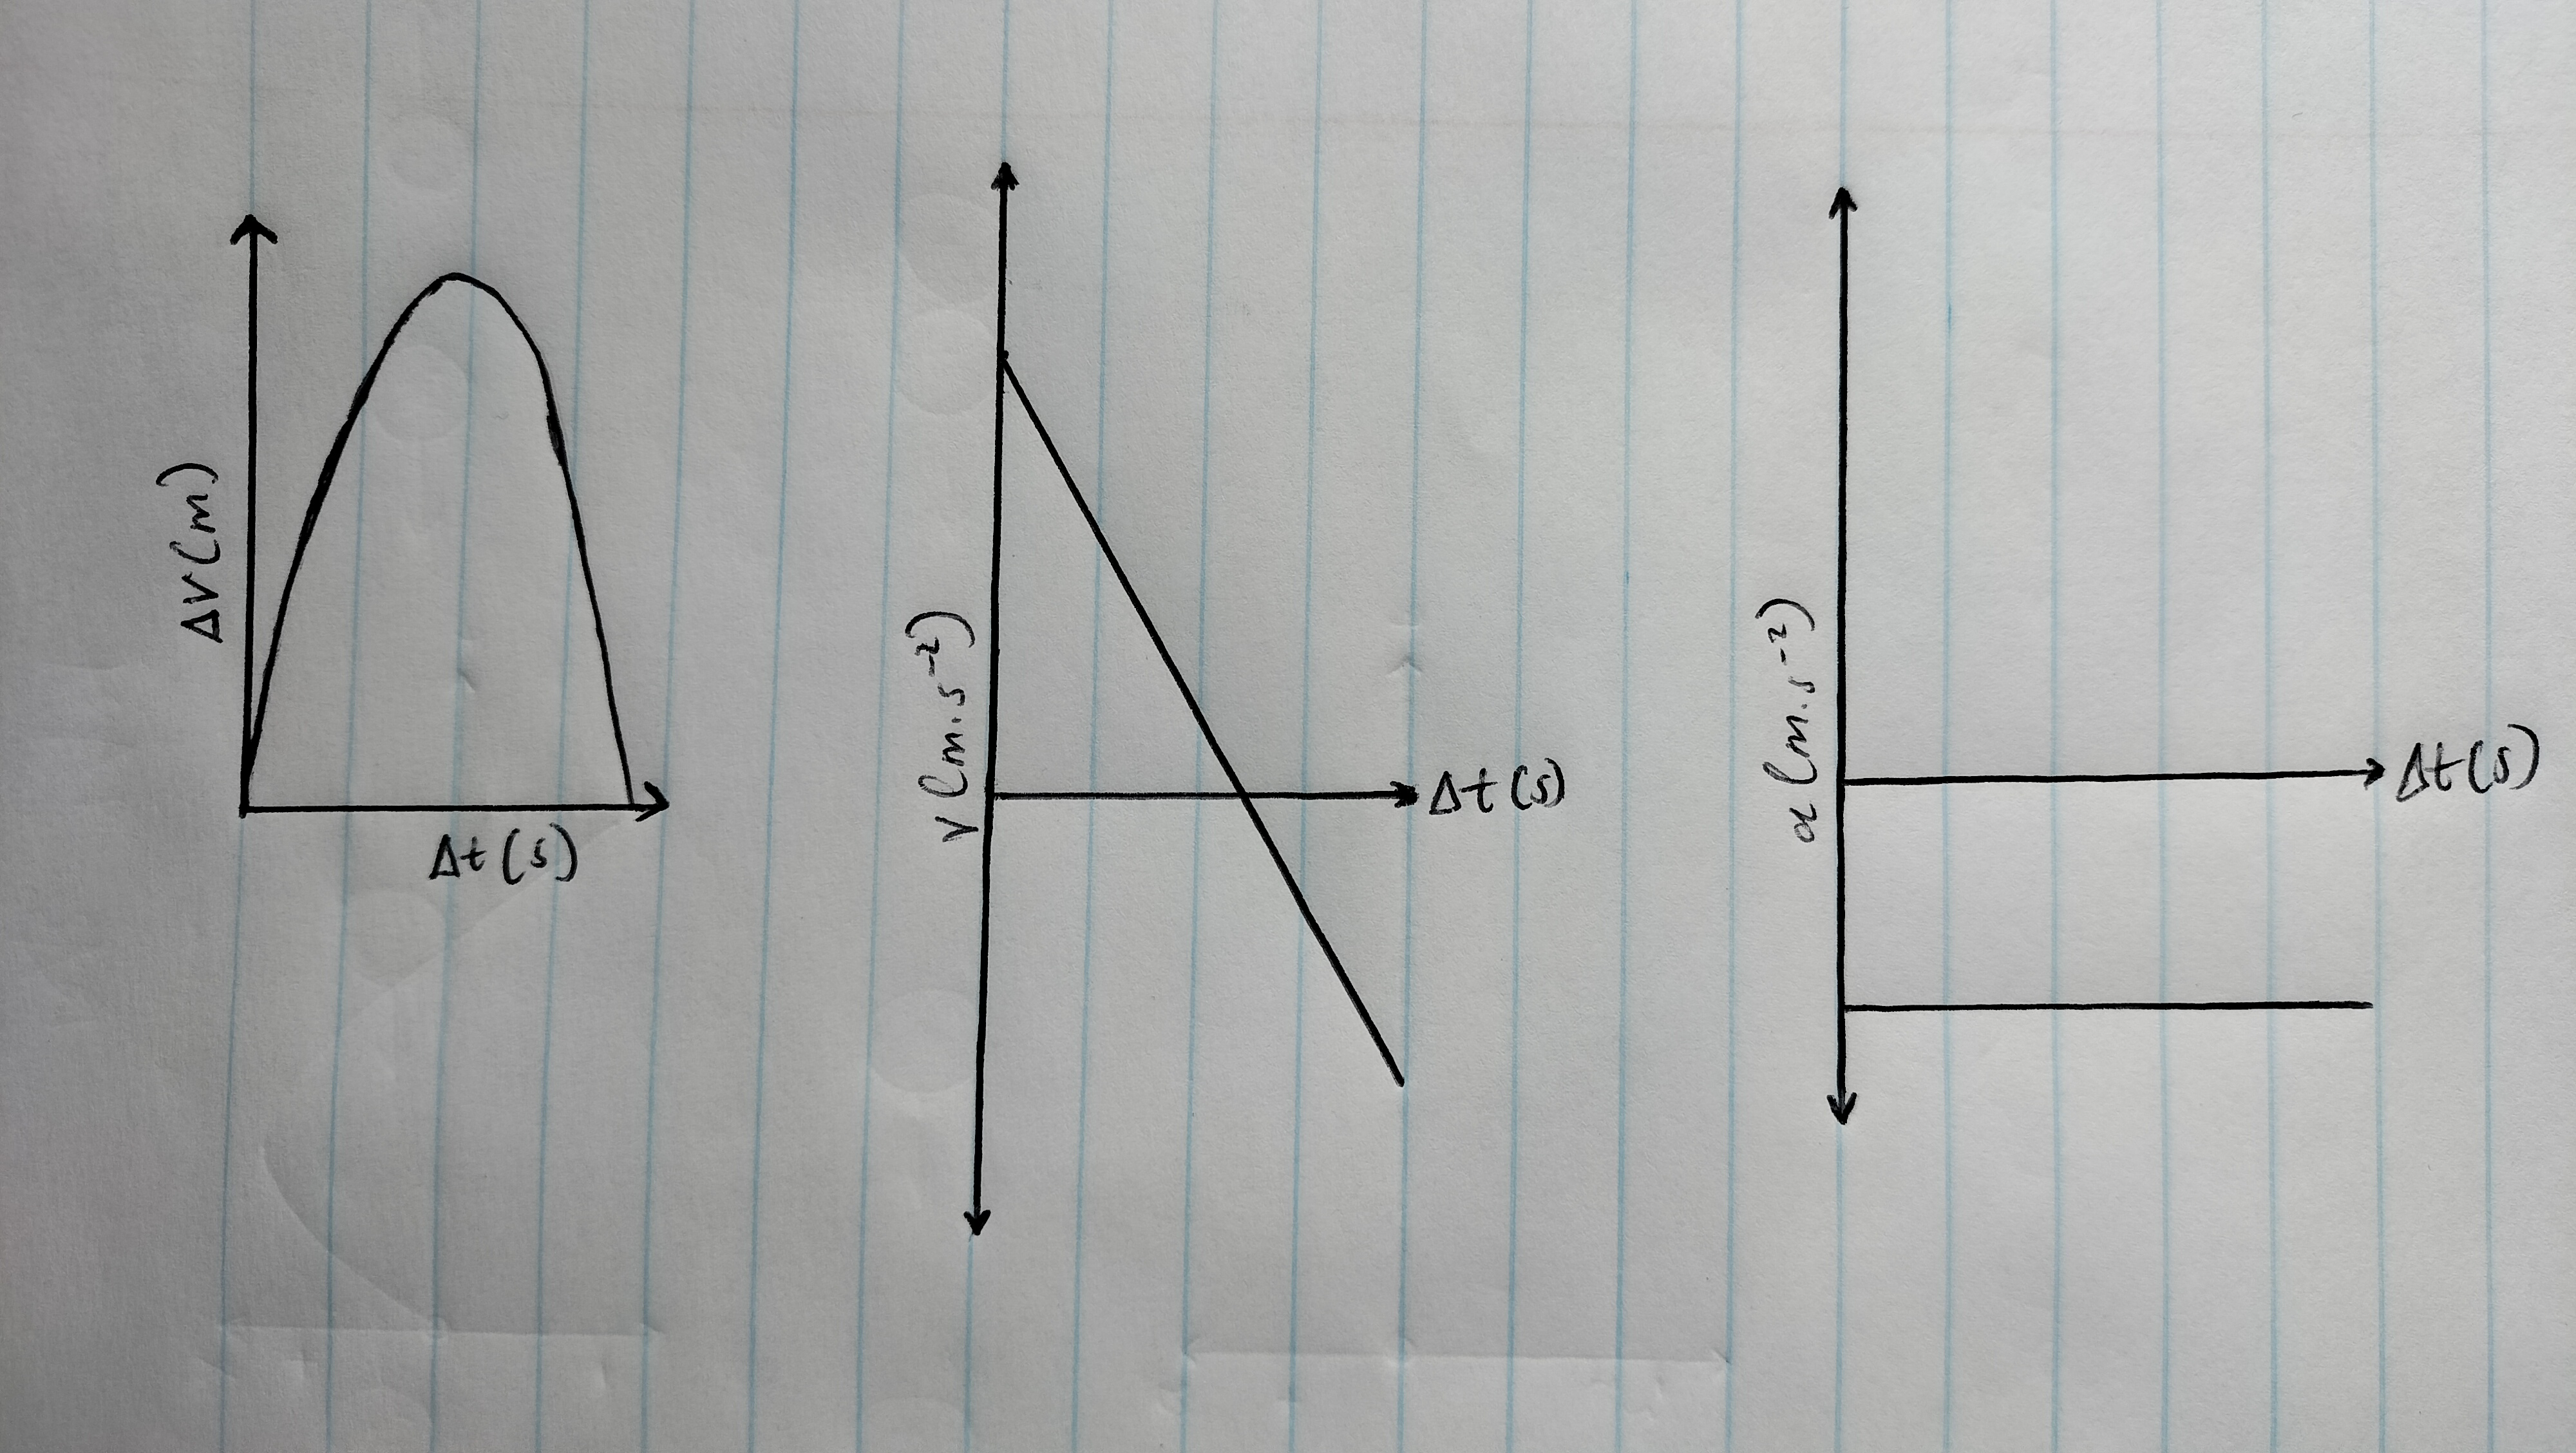 ΔV(m)
Δt(s)
V(m.s⁻²)
Δt(s)
a(m.s⁻²)
Δt(s)